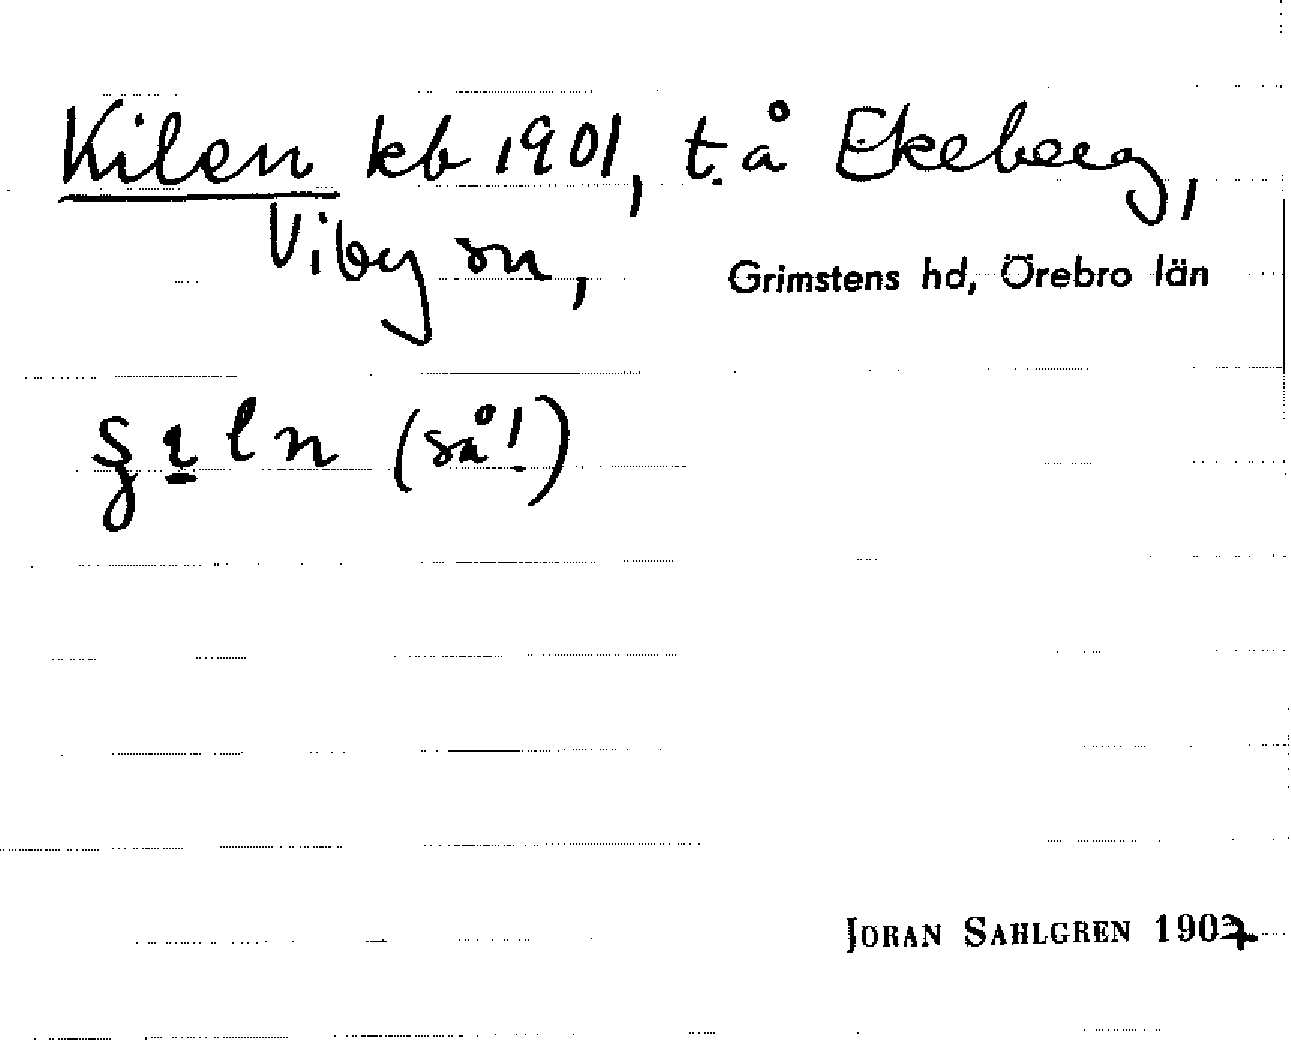 Kilen kb 1901, t. å Ekeberg,
Viby sn,
Grimstens hd, Örebro län
(så!)
JÖRAN SAHLGREN 1907